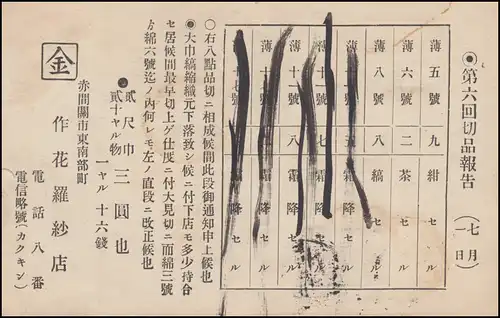 ◉第六回切品報告
(七月一日)
薄五號 九 紺セル
薄六號 二 茶セル
薄八號 八 縞セル
薄 五 霜降セル
薄十 七 霜降セル
薄 號 八 霜降セル
薄十 霜降セル
薄十七號 霜降セル
○右八點品切ニ相成候間此段御通知申上候也
◉大巾縞綿織元下落致シ候ニ付下店モ多少持合
セ居候間最早切上ゲ仕度ニ付大見切ニ而綿三號
ゟ綿六號迄ノ內何レモ左ノ直段ニ改正候也
◉貳尺巾三圓也
貳十ヤル物
一ヤル十六錢
金
赤間關市東南部町
作花羅紗店
電話八番
電信略號(カクキン)